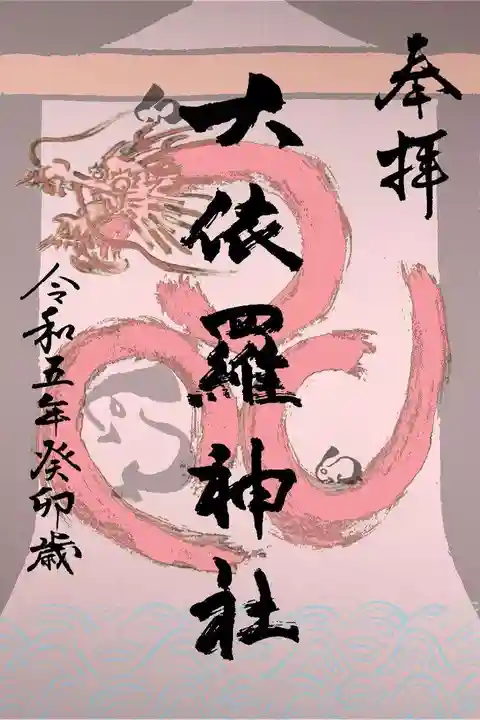 奉拝
大依羅神社
令和五年癸卯歳